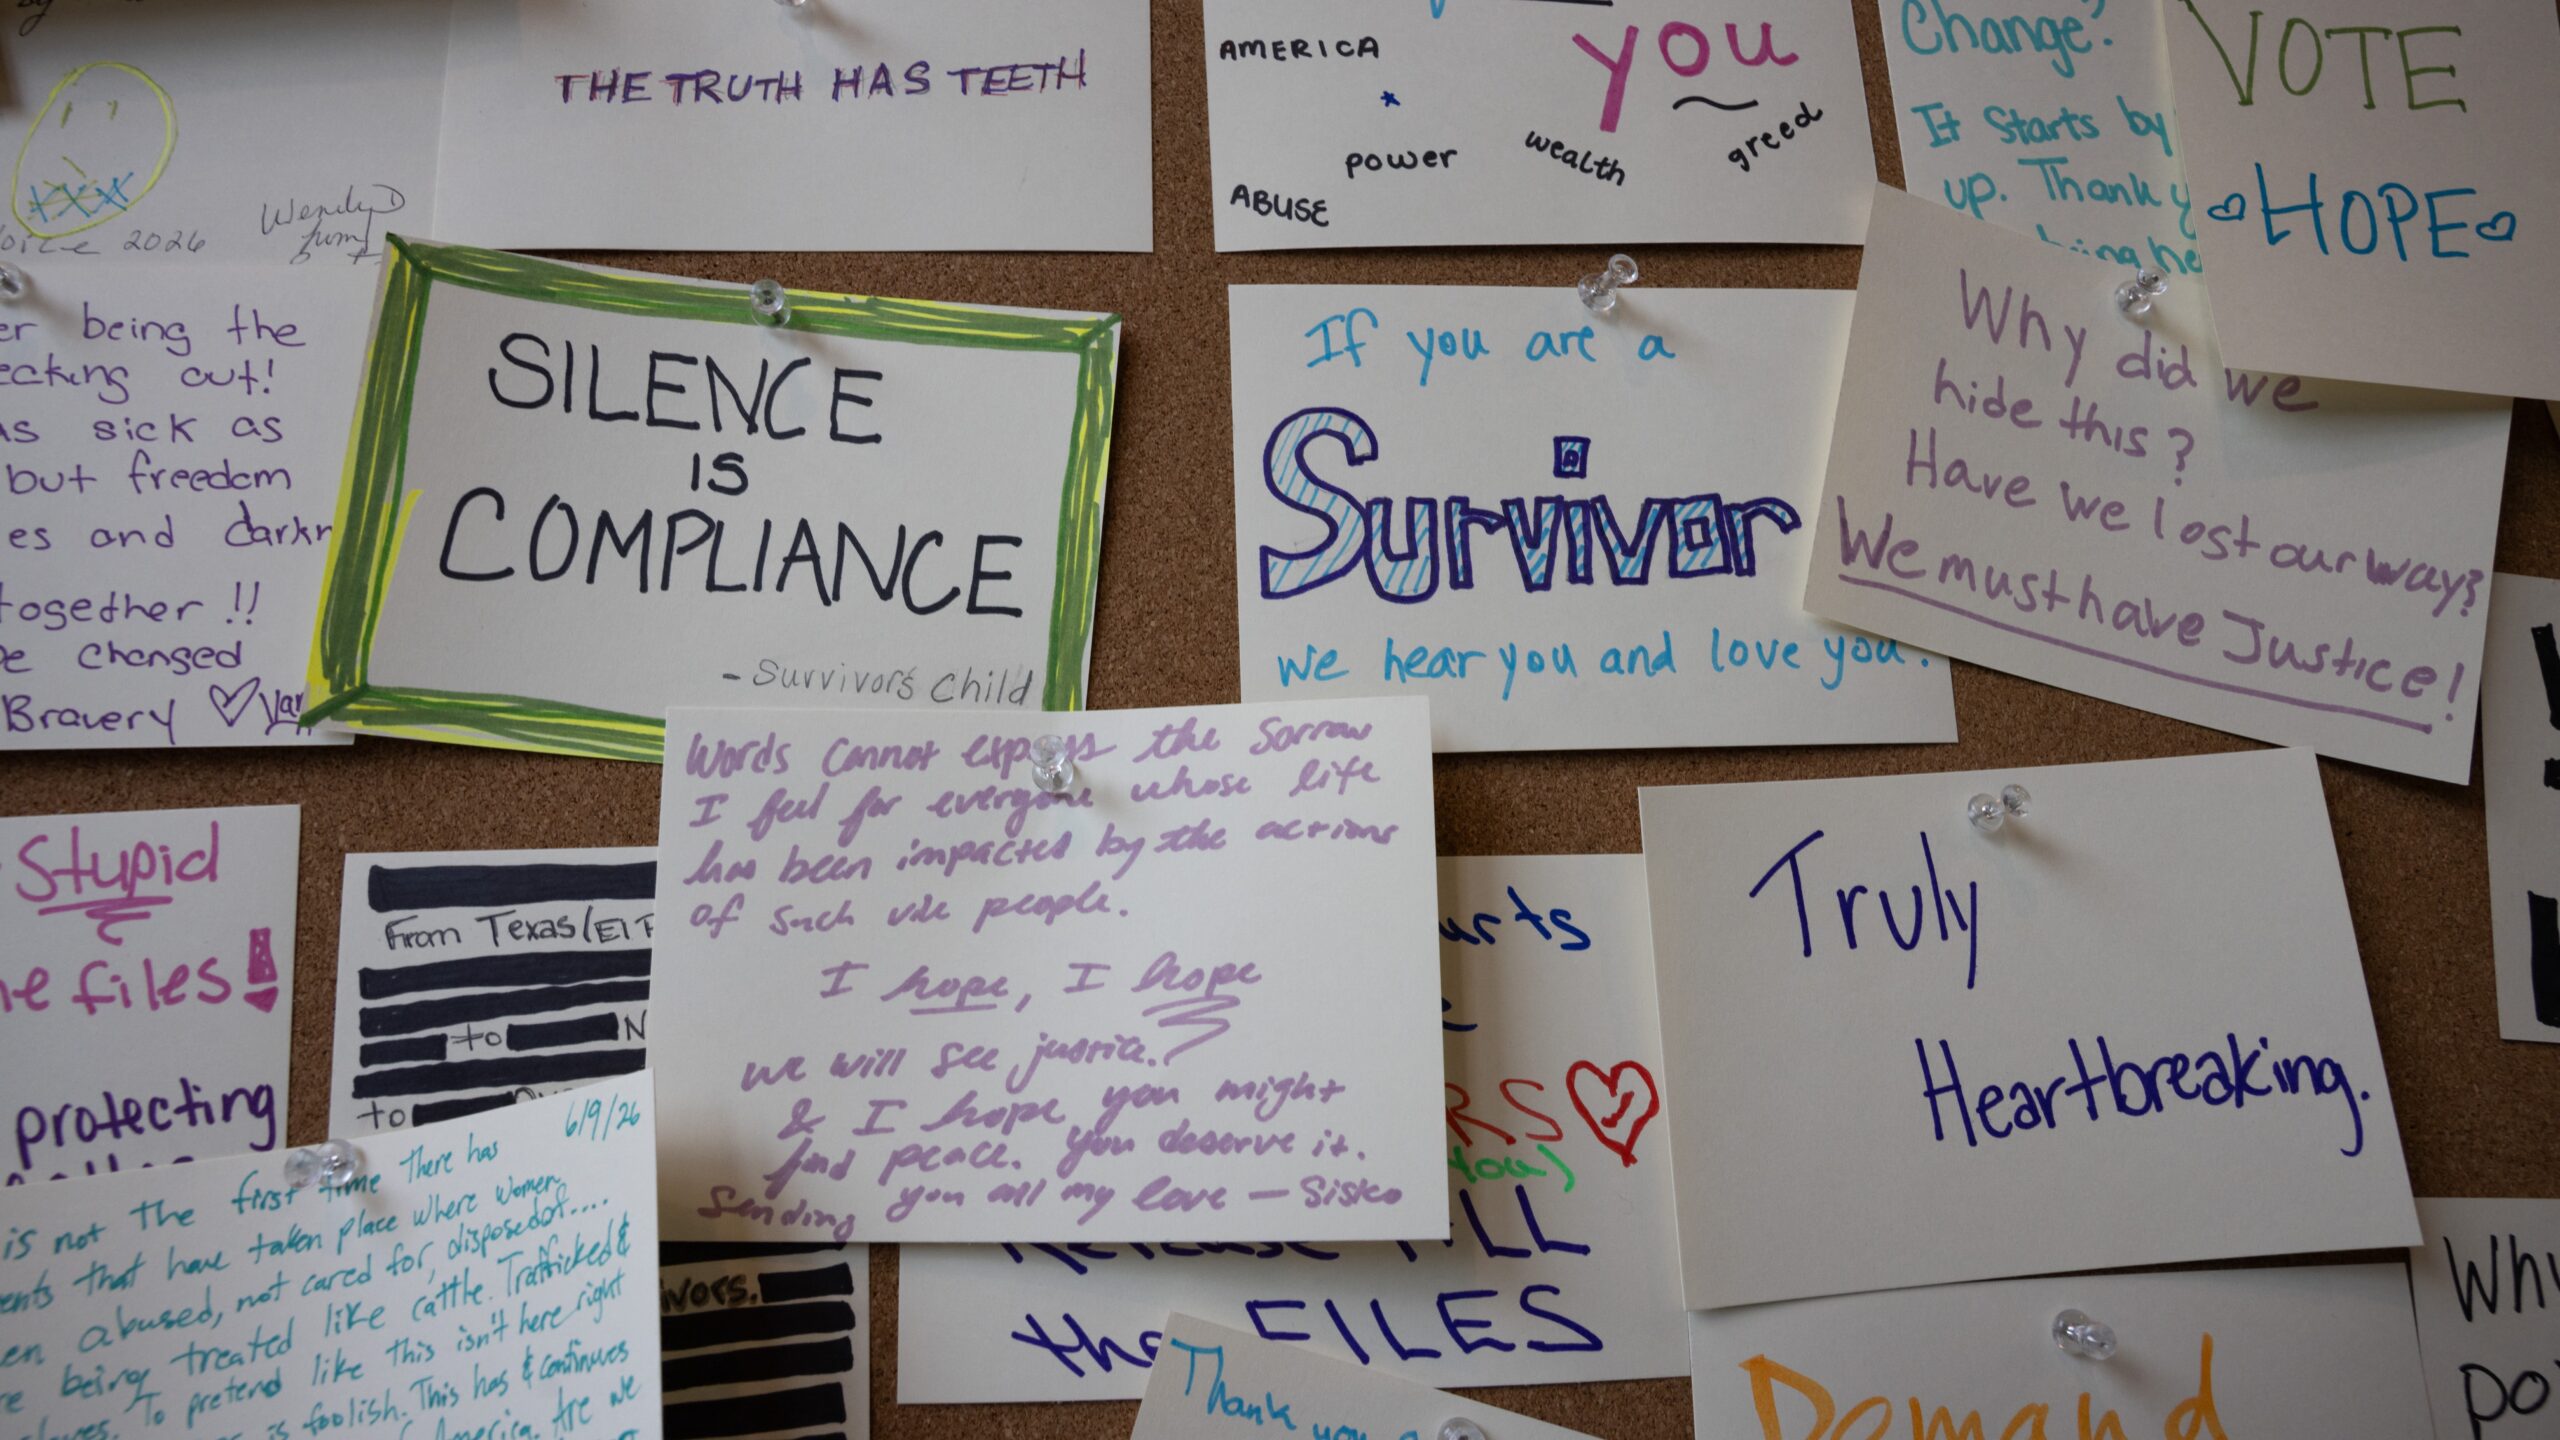 THE TRUTH HAS TEETH
YOU
AMERICA
power
wealth
greed
ABUSE
Change?
It starts by
up. Thank y
VOTE
HOPE
2026
er being the
out!
as sick as
but freedom
es and darkn
together !!
changed
Bravery
SILENCE
IS
COMPLIANCE
- Survivor's Child
If you are a
Survivor
we hear you and love you.
Why did we
hide this?
Have we lost our way?
We must have Justice!
Words cannot express the sorrow
I feel for everyone whose life
has been impacted by the actions
of such vile people.
I hope, I hope
we will see justice.
& I hope you might
find peace. You deserve it.
Sending you all my love — Sisko
Truly
Heartbreaking.
Stupid
files!
protecting
From Texas/
to
to
ivors.
6/9/26
is not the first time there has
ents that have taken place where women
en abused, not cared for, disposed of....
re being treated like cattle. Trafficked &
To pretend like this isn't here right
is foolish. This has & continues
America. Are we
urts
RS
you)
Release ALL
the FILES
Thank you
Demand
Why
po